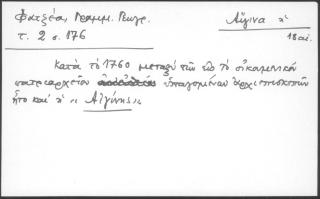 Φατζέα, Γραμμ. Γεωγρ.
τ. 2 σ. 176
Αἴγινα
18 αἰ.
Κατὰ τὸ 1760 μεταξὺ τῶν εἰς τὸ οἰκουμενικὸν
πατριαρχεῖον ὑπαγομένων ἀρχιεπισκοπῶν
ἦτο καὶ ἡ « Αἰγίνης »